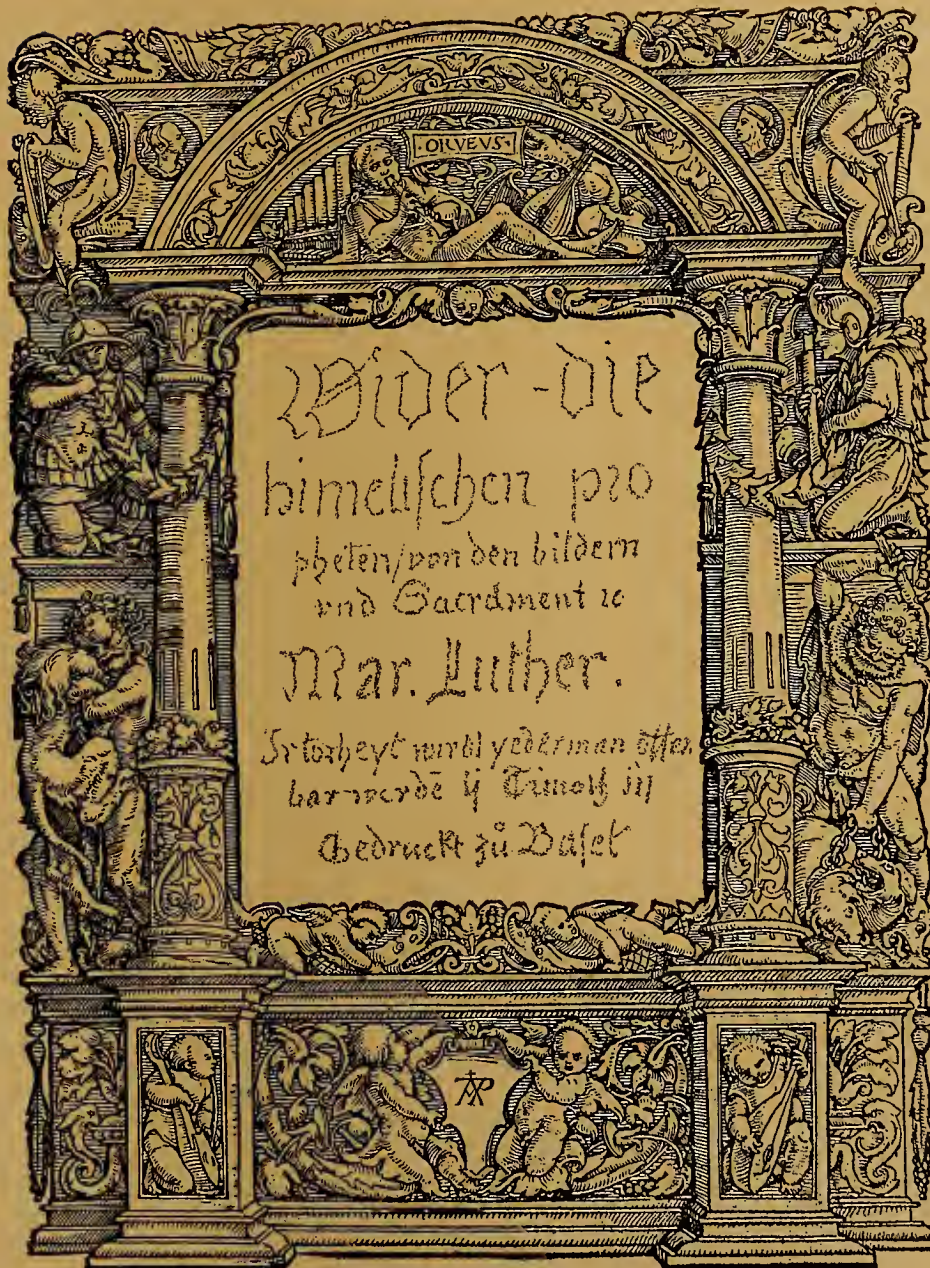 ·ORVEVS·
Wider die
himelischen pro
pheten/von den bildern
vnd Sacrament ꝛc
Mar. Luther.
Ir torheyt wirdt yederman offen
bar werdē ij Timoth iij
Gedruckt zů Basel